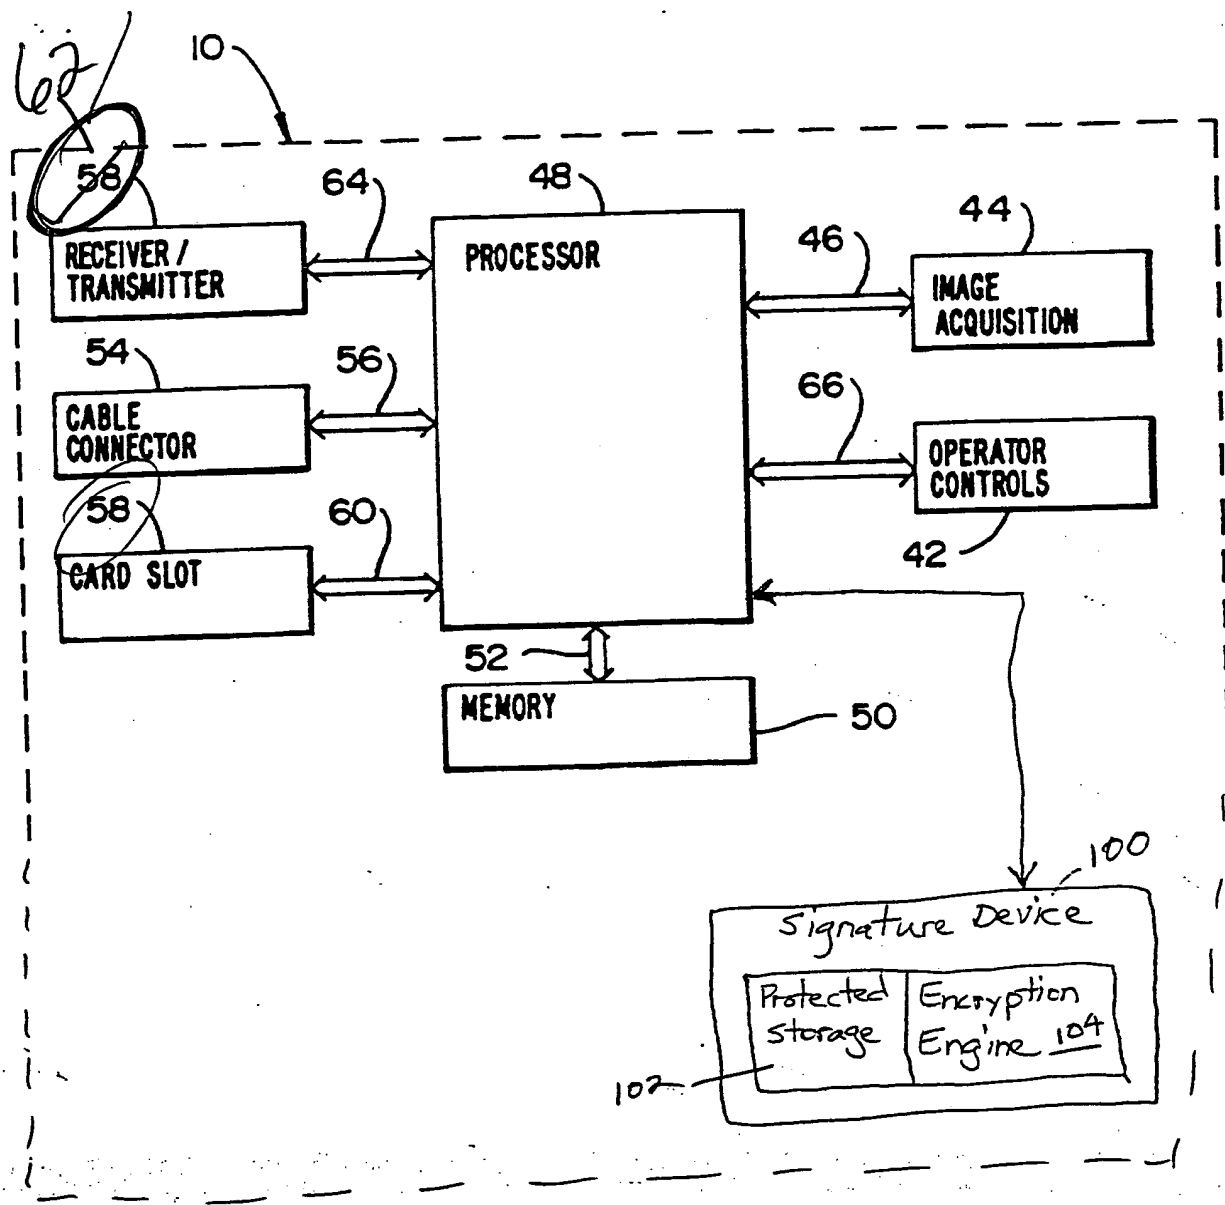 62
10
58
64
48
44
RECEIVER /
TRANSMITTER
PROCESSOR
46
IMAGE
ACQUISITION
54
56
66
CABLE
CONNECTOR
OPERATOR
CONTROLS
58
60
42
CARD SLOT
52
MEMORY
50
100
Signature Device
Protected
Storage
Encryption
Engine 104
102